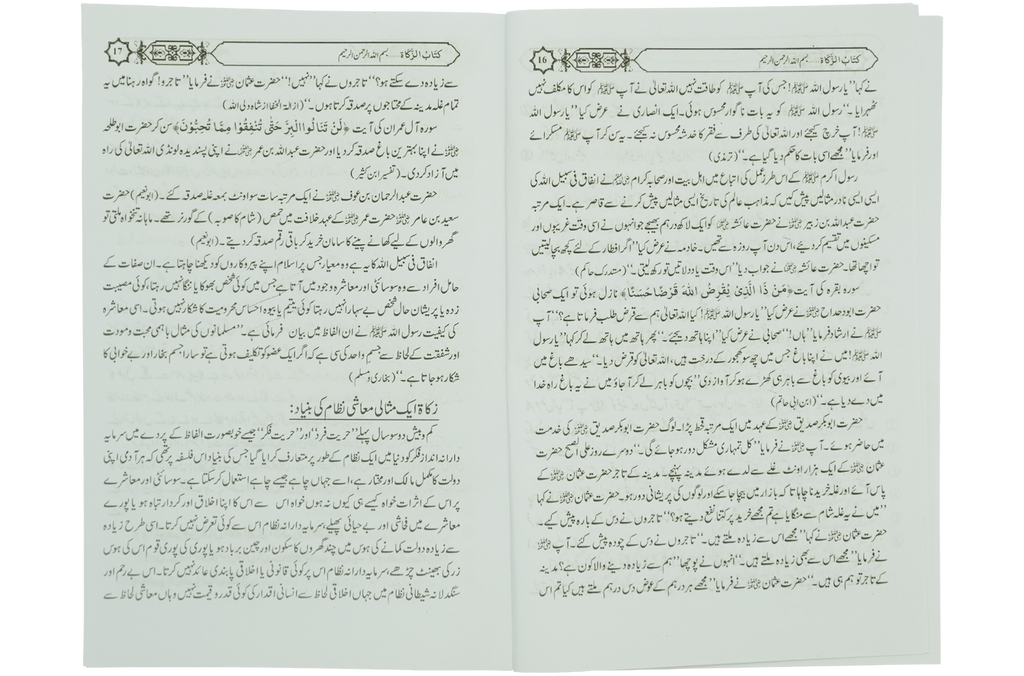 کتابُ الزّکاۃ.....بسم اللہ الرحمن الرحیم
16
نے کہا ”یارسول اللہ ﷺ! جس کی آپ ﷺ کو طاقت نہیں اللہ تعالیٰ نے آپ ﷺ کو اس کا مکلف نہیں
ٹھہرایا۔“ رسول اللہ ﷺ کو یہ بات ناگوار محسوس ہوئی۔ ایک انصاری نے عرض کیا ”یارسول اللہ
ﷺ! آپ خرچ کیجئے اور اللہ تعالیٰ کی طرف سے فقر کا خدشہ محسوس نہ کیجئے۔ یہ سن کر آپ ﷺ مسکرائے
اور فرمایا ”مجھے اسی بات کا حکم دیا گیا ہے۔“ (ترمذی)
رسول اکرم ﷺ کے اس طرز عمل کی اتباع میں اہل بیت اور صحابہ کرام ؓ نے انفاق فی سبیل اللہ کی
ایسی ایسی نادر مثالیں پیش کیں کہ مذاہب عالم کی تاریخ ایسی مثالیں پیش کرنے سے قاصر ہے۔ ایک مرتبہ
حضرت عبداللہ بن زبیر ؓ نے حضرت عائشہ ؓ کو ایک لاکھ درہم بھیجے جو انہوں نے اسی وقت غریبوں اور
مسکینوں میں تقسیم کر دیئے، اس دن آپ روزہ سے تھیں۔ خادمہ نے عرض کیا ”اگر افطار کے لئے کچھ بچا لیتیں
تو اچھا تھا۔ حضرت عائشہ ؓ نے جواب دیا ”اس وقت یاد دلاتیں تو رکھ لیتی۔“ (مستدرک حاکم)
سورہ بقرہ کی آیت ﴿مَنْ ذَا الَّذِیْ یُقْرِضُ اللّٰہَ قَرْضًا حَسَنًا﴾ نازل ہوئی تو ایک صحابی
حضرت ابودحداح ؓ نے عرض کیا ”یارسول اللہ ﷺ! کیا اللہ تعالیٰ ہم سے قرض طلب فرماتا ہے؟“ آپ
ﷺ نے ارشاد فرمایا ”ہاں!“ صحابی نے عرض کیا ”اپنا ہاتھ دیجئے۔“ پھر ہاتھ میں ہاتھ لے کر کہا ”یارسول
اللہ ﷺ! میں نے اپنا باغ جس میں چھ سو کھجور کے درخت ہیں، اللہ تعالیٰ کو قرض دیا۔“ سیدھے باغ میں
آئے اور بیوی کو باغ سے باہر ہی کھڑے ہو کر آواز دی ”بچوں کو باہر لے کر آجاؤ میں نے یہ باغ راہ خدا
میں دے دیا ہے۔“ (ابن ابی حاتم)
حضرت ابوبکر صدیق ؓ کے عہد میں ایک مرتبہ قحط پڑا۔ لوگ حضرت ابوبکر صدیق ؓ کی خدمت
میں حاضر ہوئے۔ آپ ؓ نے فرمایا ”کل تمہاری مشکل دور ہو جائے گی۔“ دوسرے روز علی الصبح حضرت
عثمان ؓ کے ایک ہزار اونٹ غلے سے لدے ہوئے مدینہ پہنچے۔ مدینہ کے تاجر حضرت عثمان ؓ کے
پاس آئے اور غلہ خریدنا چاہا تاکہ بازار میں بیچا جا سکے اور لوگوں کی پریشانی دور ہو۔ حضرت عثمان ؓ نے کہا
”میں نے یہ غلہ شام سے منگایا ہے تم مجھے خرید پر کتنا نفع دیتے ہو؟“ تاجروں نے دس کے بارہ پیش کیے۔
حضرت عثمان ؓ نے کہا ”مجھے اس سے زیادہ ملتے ہیں۔“ تاجروں نے دس کے چودہ پیش کئے۔ آپ ؓ
نے فرمایا ”مجھے اس سے بھی زیادہ ملتے ہیں۔“ انہوں نے پوچھا ”ہم سے زیادہ دینے والا کون ہے؟ مدینہ
کے تاجر تو ہم ہی ہیں۔“ حضرت عثمان ؓ نے فرمایا ”مجھے ہر درہم کے عوض دس درہم ملتے ہیں کیا تم اس
کتابُ الزّکاۃ.....بسم اللہ الرحمن الرحیم
17
سے زیادہ دے سکتے ہو؟“ تاجروں نے کہا ”نہیں!“ حضرت عثمان ؓ نے فرمایا ”تاجرو! گواہ رہنا میں یہ
تمام غلہ مدینہ کے محتاجوں پر صدقہ کرتا ہوں۔“ (ازالۃ الخفا از شاہ ولی اللہ)
سورہ آل عمران کی آیت ﴿لَنْ تَنَالُوا الْبِرَّ حَتّٰی تُنْفِقُوْا مِمَّا تُحِبُّوْنَ﴾ سن کر حضرت ابوطلحہ
ؓ نے اپنا بہترین باغ صدقہ کر دیا اور حضرت عبداللہ بن عمر ؓ نے اپنی پسندیدہ لونڈی اللہ تعالیٰ کی راہ
میں آزاد کر دی۔ (تفسیر ابن کثیر)
حضرت عبدالرحمان بن عوف ؓ نے ایک مرتبہ سات سو اونٹ بمعہ غلہ صدقہ کئے۔ (ابونعیم) حضرت
سعید بن عامر ؓ حضرت عمر ؓ کے عہد خلافت میں حمص (شام کا صوبہ) کے گورنر تھے۔ ماہانہ تنخواہ ملتی تو
گھر والوں کے لیے کھانے پینے کا سامان خرید کر باقی رقم صدقہ کر دیتے۔ (ابونعیم)
انفاق فی سبیل اللہ کا یہ ہے وہ معیار جس پر اسلام اپنے پیروکاروں کو دیکھنا چاہتا ہے۔ ان صفات کے
حامل افراد سے وہ سوسائٹی اور معاشرہ وجود میں آتا ہے جس میں کوئی شخص بھوکا یا ننگا نہیں رہتا، کوئی مصیبت
زدہ یا پریشان حال شخص بے سہارا نہیں رہتا کوئی یتیم یا بیوہ احساس محرومیت کا شکار نہیں ہوتی۔ اسی معاشرہ
کی کیفیت رسول اللہ ﷺ نے ان الفاظ میں بیان فرمائی ہے۔ ”مسلمانوں کی مثال باہمی محبت ومودت
اور شفقت کے لحاظ سے جسم واحد کی سی ہے کہ اگر ایک عضو کو تکلیف ہوتی ہے تو سارا جسم بخار اور بے خوابی کا
شکار ہو جاتا ہے۔“ (بخاری ومسلم)
زکاۃ ایک مثالی معاشی نظام کی بنیاد:
کم وبیش دو سو سال پہلے ”حریت فرد“ اور ”حریت فکر“ جیسے خوبصورت الفاظ کے پردے میں سرمایہ
دارانہ انداز فکر کو دنیا میں ایک نظام کے طور پر متعارف کرایا گیا جس کی بنیاد اس فلسفہ پر تھی کہ ہر آدمی اپنی
دولت کا مکمل مالک اور مختار ہے، اسے جہاں چاہے جیسے چاہے استعمال کر سکتا ہے۔ سوسائٹی اور معاشرے
پر اس کے اثرات خواہ کیسے ہی کیوں نہ ہوں خواہ اس سے اس کا اپنا اخلاق اور کردار تباہ ہو یا پورے
معاشرے میں فحاشی اور بے حیائی پھیلے، سرمایہ دارانہ نظام اس سے کوئی تعرض نہیں کرتا۔ اسی طرح زیادہ
سے زیادہ دولت کمانے کی ہوس میں چند گھروں کا سکون اور چین برباد ہو یا پوری کی پوری قوم اس کی ہوس
زر کی بھینٹ چڑھے، سرمایہ دارانہ نظام اس پر کوئی قانونی یا اخلاقی پابندی عائد نہیں کرتا۔ اس بے رحم اور
سنگدلانہ شیطانی نظام میں جہاں اخلاقی لحاظ سے انسانی اقدار کی کوئی قدر و قیمت نہیں وہاں معاشی لحاظ سے